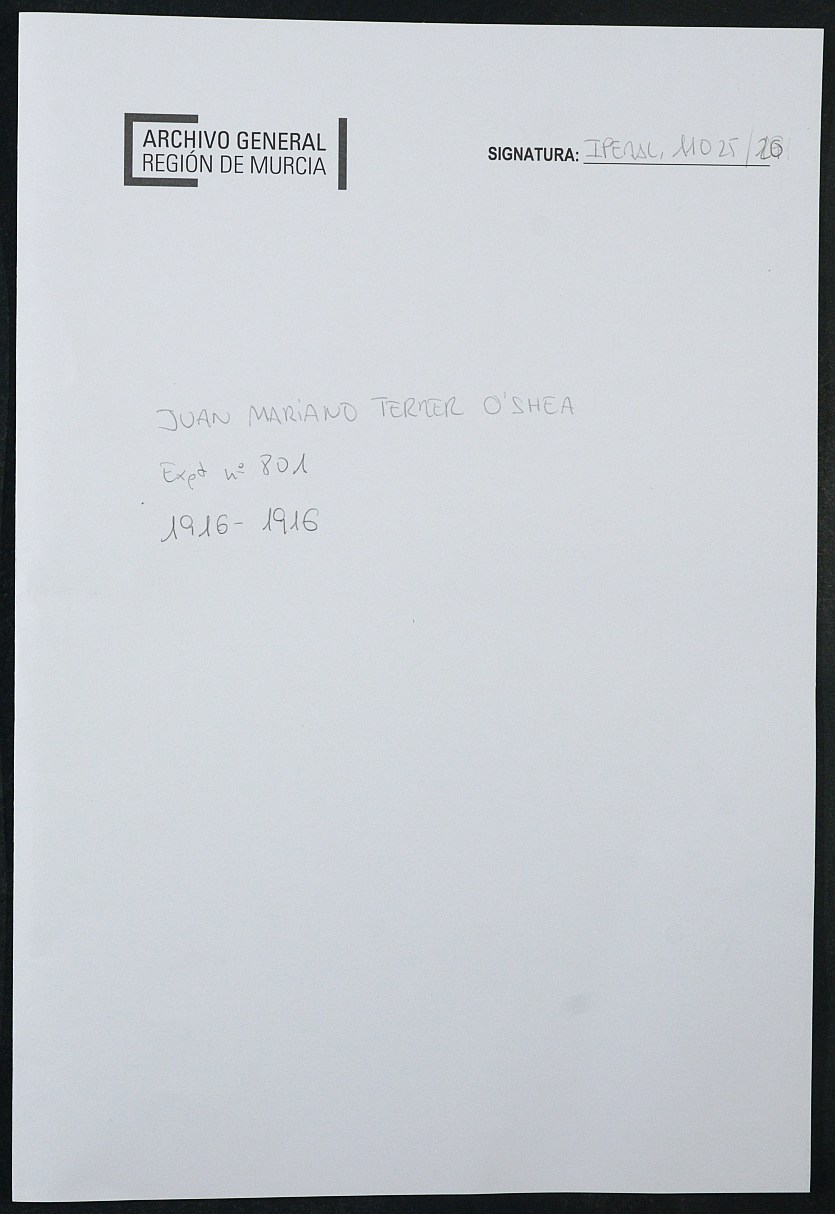 ARCHIVO GENERAL
REGIÓN DE MURCIA
SIGNATURA: IPERAL, 11025/26
JUAN MARIANO TERRER O'SHEA
Expt nº 801
1916- 1916